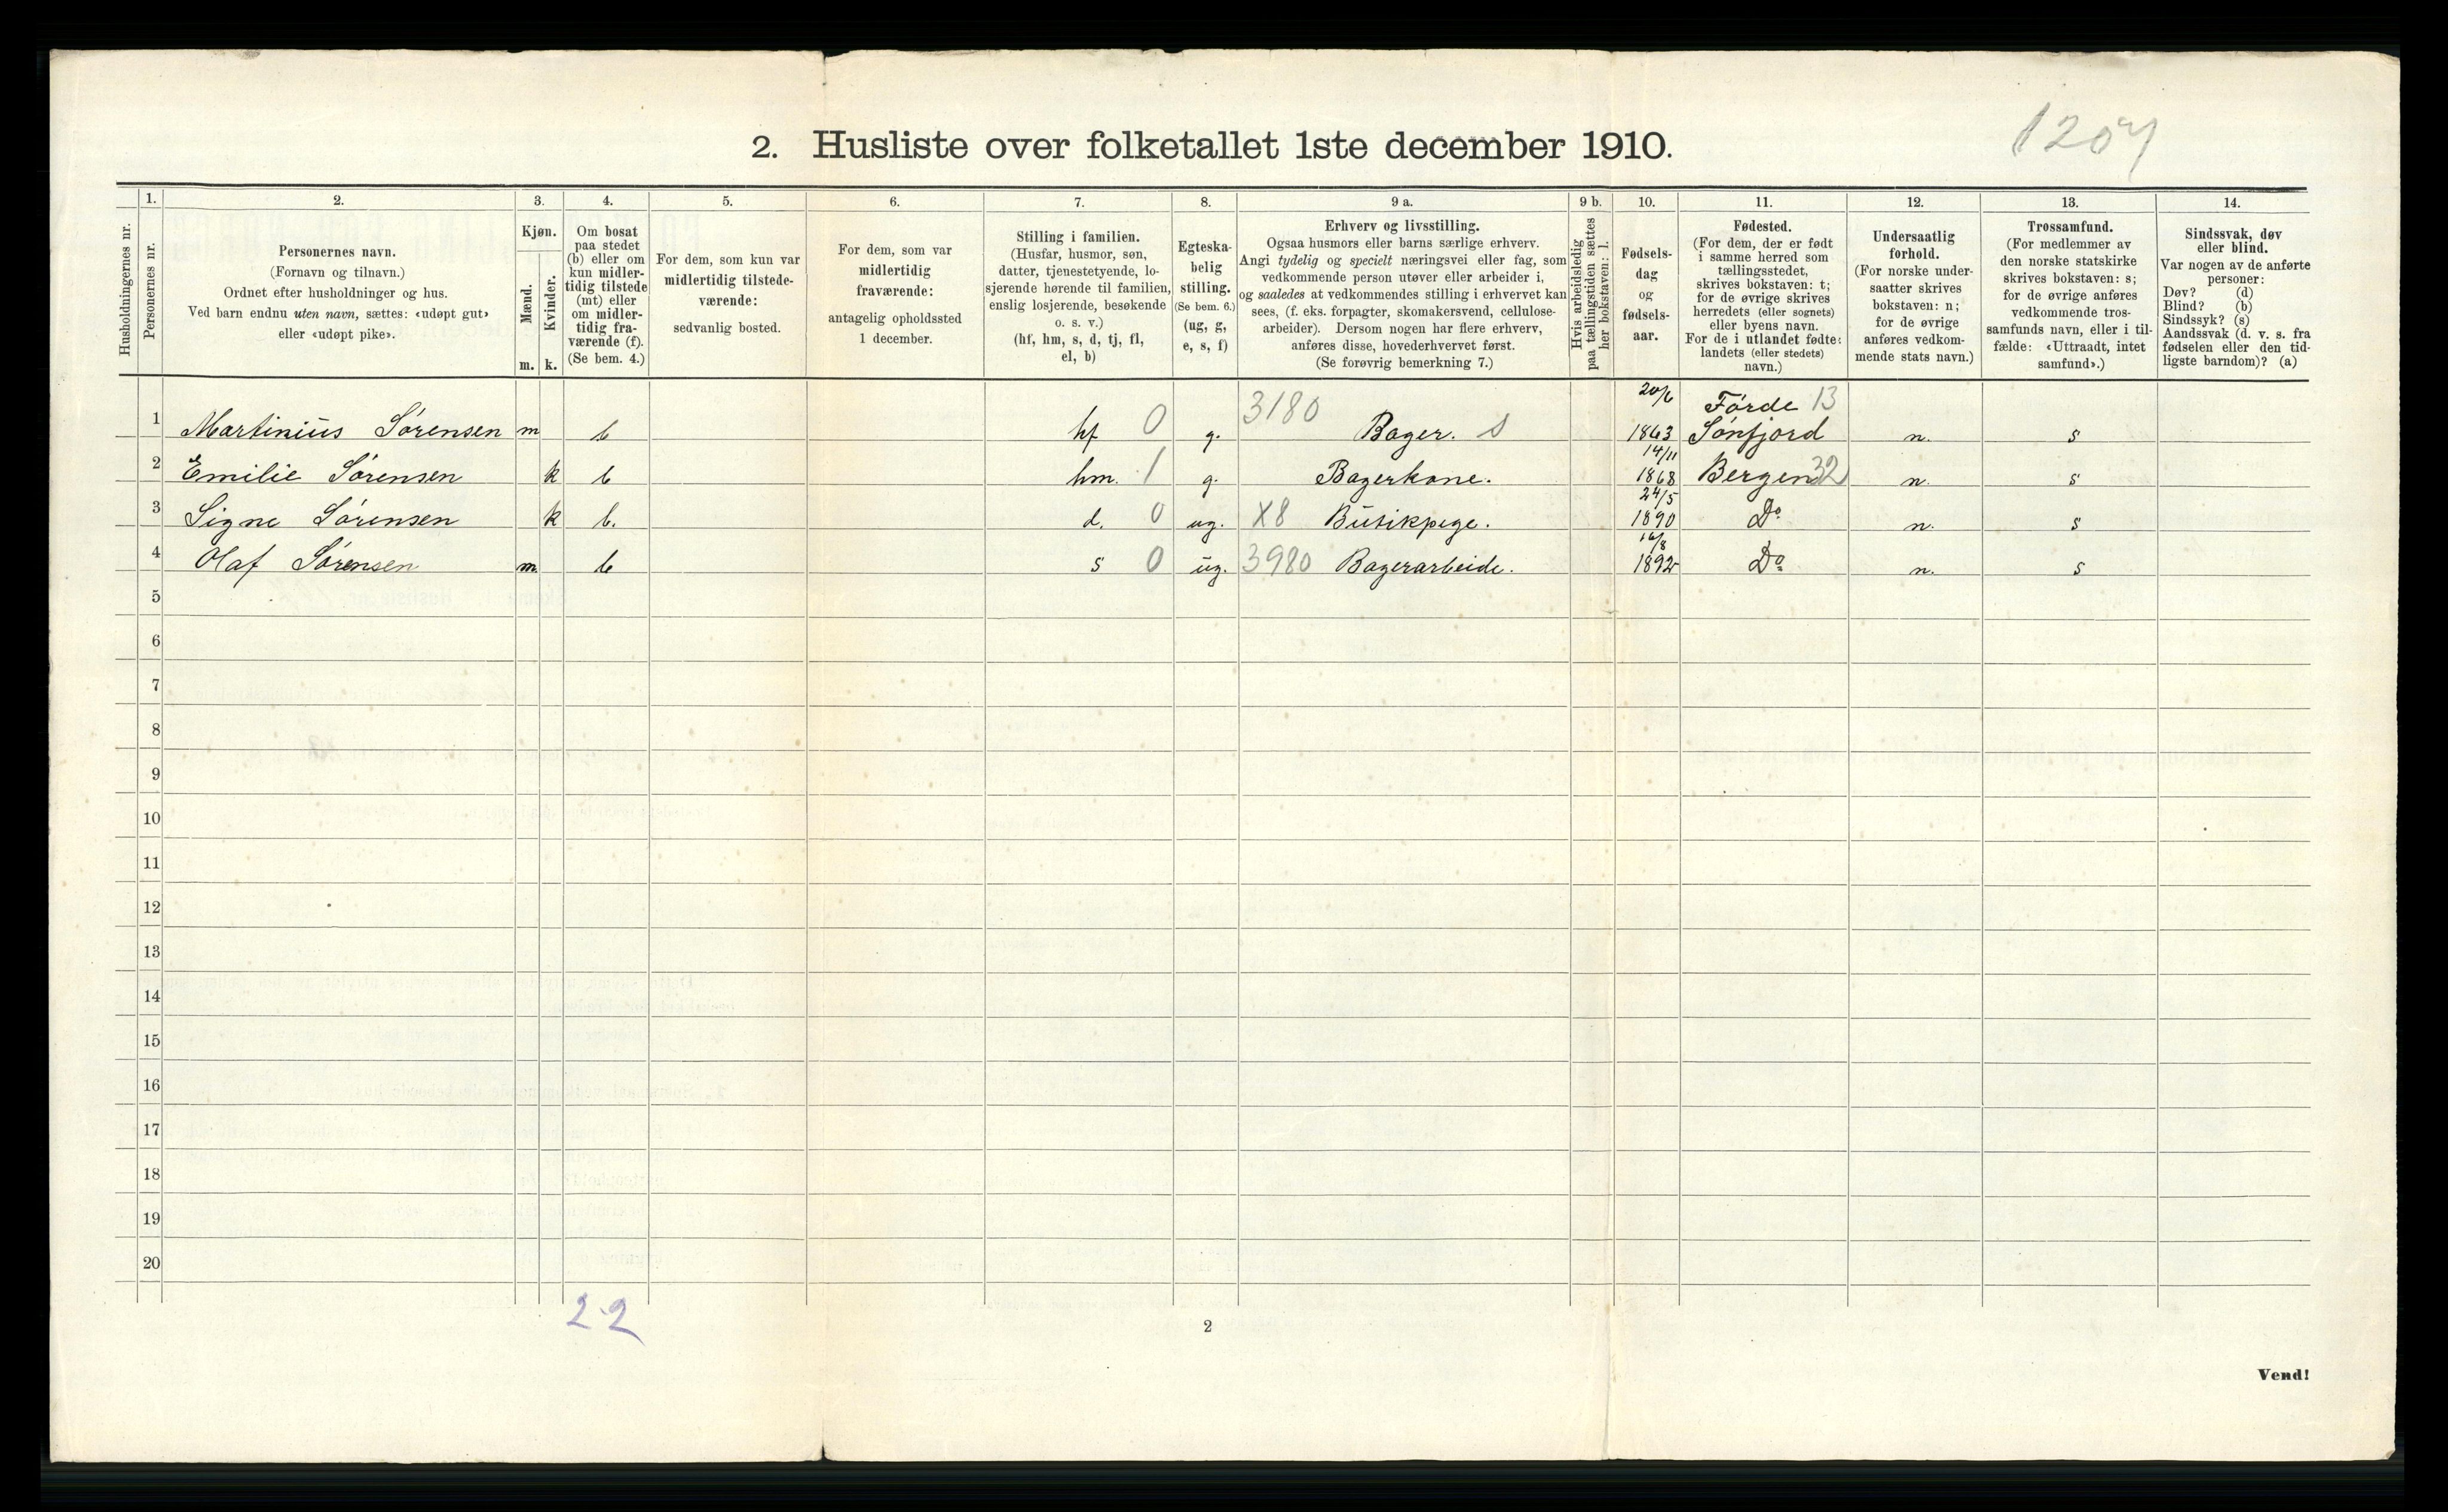 1204
2. Husliste over folketallet 1ste december 1910.
Husholdningernes nr.
1. Personernes nr.
2. Personernes navn.
(Fornavn og tilnavn.)
Ordnet efter husholdninger og hus.
Ved barn endnu uten navn, sættes: «udøpt gut»
eller «udøpt pike».
3. Kjøn.
Mænd. m.
Kvinder. k.
4. Om bosat
paa stedet
(b) eller om
kun midler-
tidig tilstede
(mt) eller
om midler-
tidig fra-
værende (f).
(Se bem. 4.)
5. For dem, som kun var
midlertidig tilstede-
værende:
sedvanlig bosted.
6. For dem, som var
midlertidig
fraværende:
antagelig opholdssted
1 december.
7. Stilling i familien.
(Husfar, husmor, søn,
datter, tjenestetyende, lo-
sjerende hørende til familien,
enslig losjerende, besøkende
o. s. v.)
(hf, hm, s, d, tj, fl,
el, b)
8. Egteska-
belig
stilling.
(Se bem. 6.)
(ug, g,
e, s, f)
9 a. Erhverv og livsstilling.
Ogsaa husmors eller barns særlige erhverv.
Angi tydelig og specielt næringsvei eller fag, som
vedkommende person utøver eller arbeider i,
og saaledes at vedkommendes stilling i erhvervet kan
sees, (f. eks. forpagter, skomakersvend, cellulose-
arbeider). Dersom nogen har flere erhverv,
anføres disse, hovederhvervet først.
(Se forøvrig bemerkning 7.)
9 b. Hvis arbeidsledig
paa tællingstiden sættes
her bokstaven: l.
10. Fødsels-
dag
og
fødsels-
aar.
11. Fødested.
(For dem, der er født
i samme herred som
tællingsstedet,
skrives bokstaven: t;
for de øvrige skrives
herredets (eller sognets)
eller byens navn.
For de i utlandet fødte:
landets (eller stedets)
navn.)
12. Undersaatlig
forhold.
(For norske under-
saatter skrives
bokstaven: n;
for de øvrige
anføres vedkom-
mende stats navn.)
13. Trossamfund.
(For medlemmer av
den norske statskirke
skrives bokstaven: s;
for de øvrige anføres
vedkommende tros-
samfunds navn, eller i til-
fælde: «Uttraadt, intet
samfund».)
14. Sindssvak, døv
eller blind.
Var nogen av de anførte
personer:
Døv? (d)
Blind? (b)
Sindssyk? (s)
Aandssvak (d. v. s. fra
fødselen eller den tid-
ligste barndom)? (a)
1 Martinius Sørensen m b hf 0 g. 3180 Bager. S 20/6 1863 Førde 13 Sønfjord n. s
2 Emilie Sørensen k b hm. 1 g. Bagerkone. 14/11 1868 Bergen 32 n. s
3 Signe Sørensen k b. d. 0 ug. X8 Butikpige. 24/5 1890 Do n. s
4 Olaf Sørensen m b s 0 ug. 3980 Bagerarbeide. 16/8 1892 Do n. s
5
6
7
8
9
10
11
12
13
14
15
16
17
18
19
20
2·2
2
Vend!